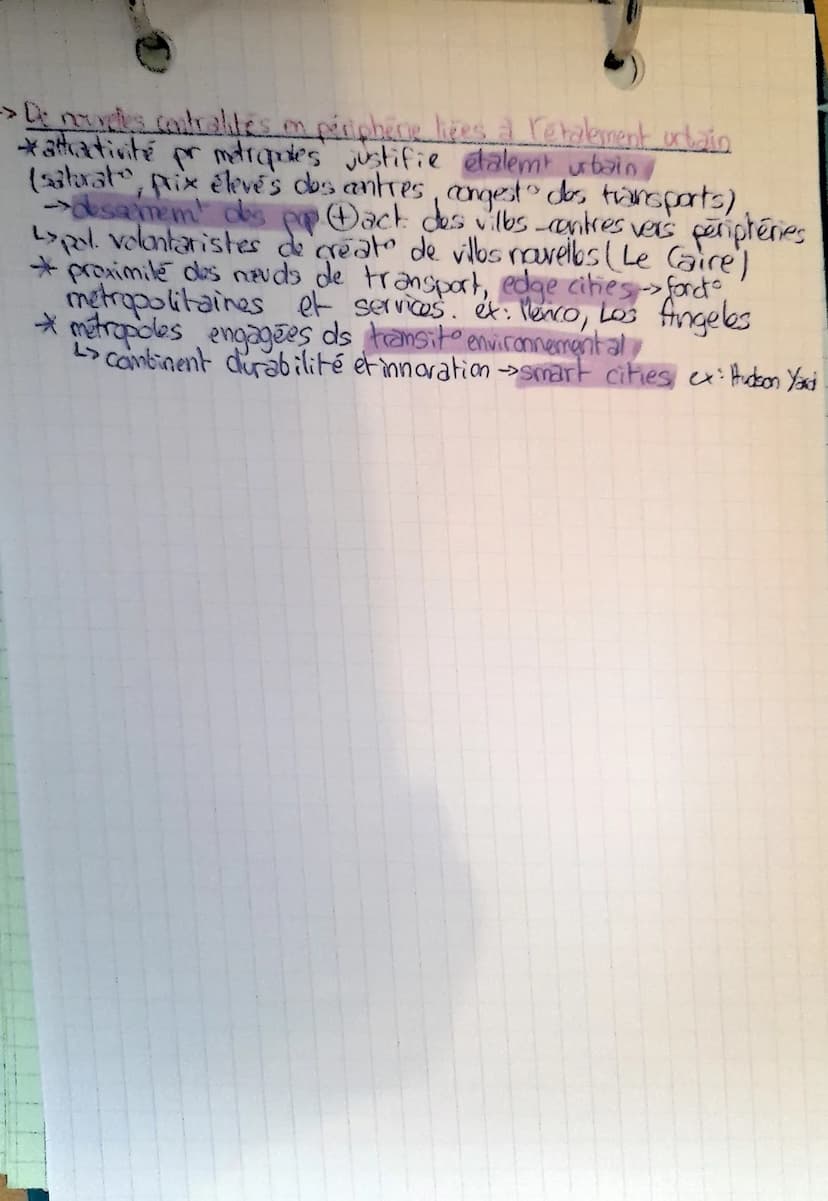 -> De nouvelles centralités en périphérie liées à l'étalement urbain
* attractivité pr métropoles justifie étalemt urbain
(saturat°, prix élevés des centres, congest° des transports)
-> desserrem^t des pop (+) act. des villes-centres vers périphéries
↳ pol. volontaristes de créat° de villes nouvelles (Le Caire)
* proximité des nœuds de transport, edge cities -> fonct°
métropolitaines et services. ex: Mexico, Los Angeles
* métropoles engagées ds transit° environnemental
↳ combinent durabilité et innovation -> smart cities, ex: Hudson Yard